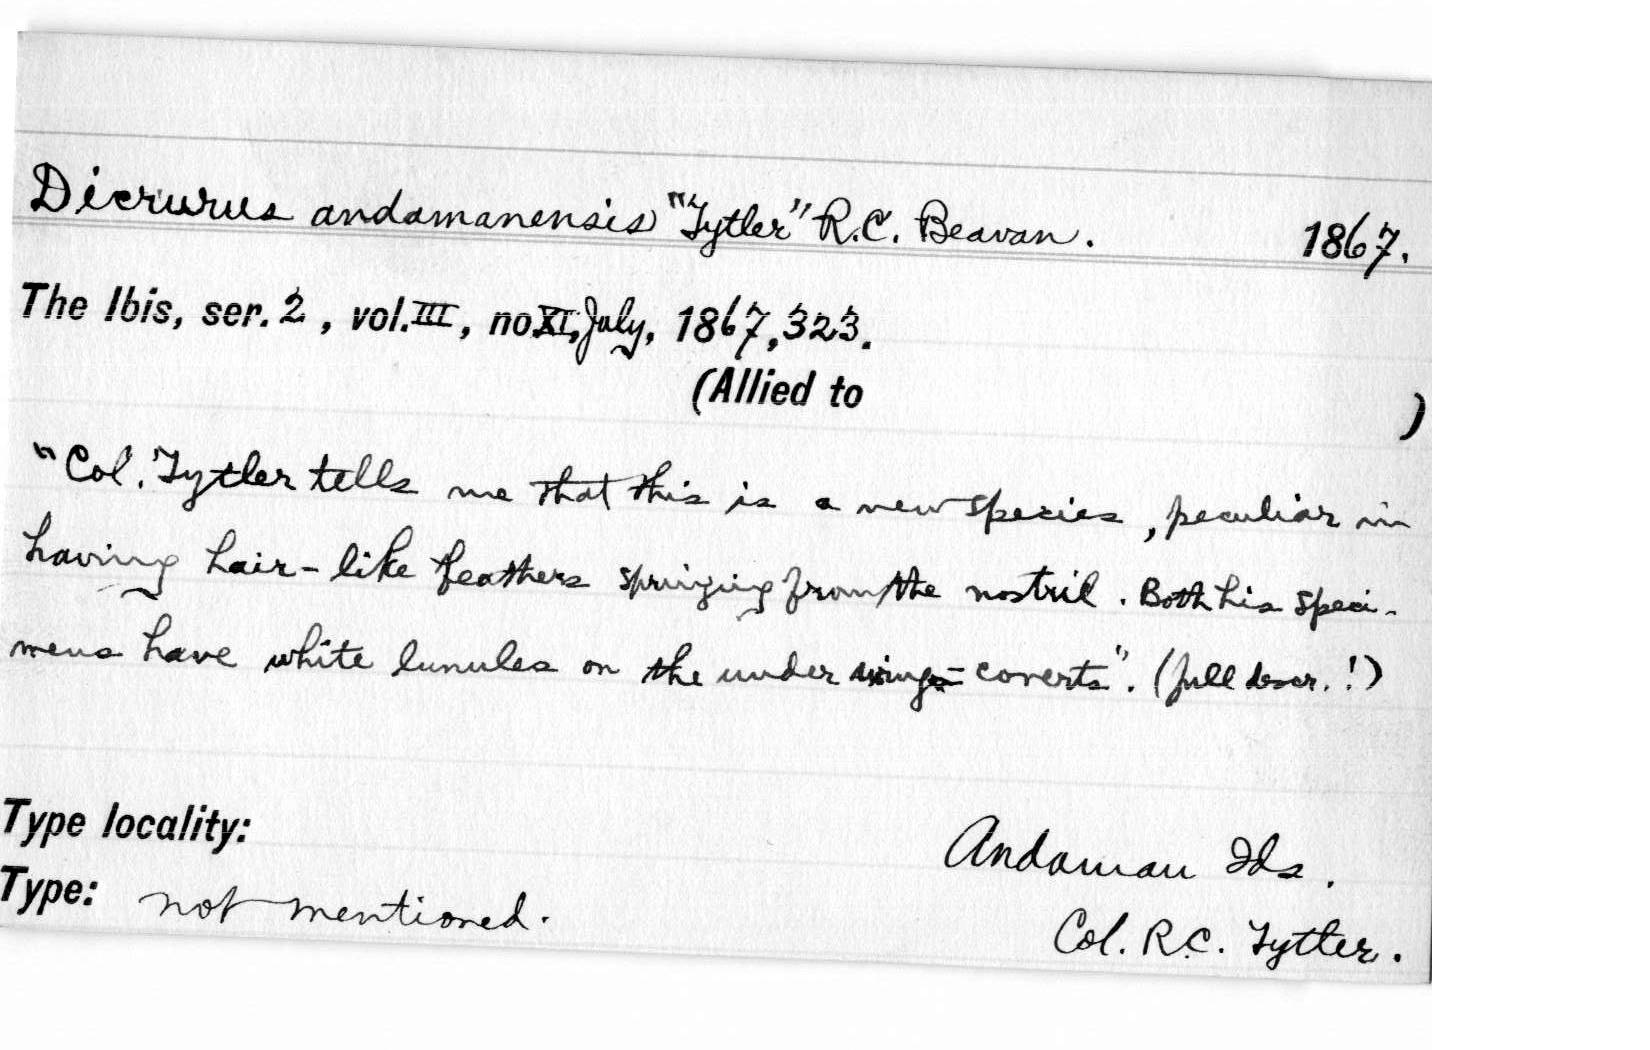 Dicrurus andamanensis "Tytler" R.C. Beavan. 1867.
The Ibis, ser. 2, vol. III, no XI, July, 1867, 323.
(Allied to )
"Col. Tytler tells me that this is a new species, peculiar in
having hair-like feathers springing from the nostril. Both his speci-
mens have white lunules on the under wing-coverts". (full descr.!)
Type locality: Andaman Ids.
Type: not mentioned.
Col. R.C. Tytler.